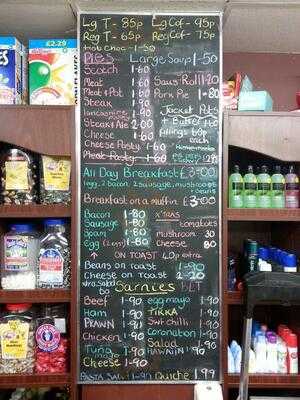 Lg T - 85p Lg Cof - 95p
Reg T - 65p Reg Cof - 75p
Hot Choc - 1-50
PIES Large Soup 1-50
Scotch 1-60
Meat 1-60 Saus-Roll 1-20
Meat & Pot 1-60 Pork Pie 1-80
Steak 1-90
Steak & Ale 2-00 Jacket Pots
Cheese 1-60 + Butter
Cheese Pasty 1-60 fillings 60p each
Meat Pasty 1-60 Homemade
All Day Breakfast £3-00
1 egg, 2 bacon, 2 sausage, mushrooms
Breakfast on a muffin £3-00
Bacon 1-80 X'TRAS
Sausage 1-80 tomatoes
Spam 1-80 Mushroom 30
Egg 1-80 Cheese 80
ON TOAST 40p extra
Beans on toast 1-90
Cheese on toast 2-20
Sarnies BLT
Beef 1-90 egg mayo 1-90
Ham 1-90 TIKKA 1-90
PRAWN 1-90 Swt chilli 1-90
Chicken 1-90 Coronation 1-90
Tuna 1-90 Salad 1-90
mayo HAWAIIN 1-90
Cheese 1-90
PASTA SAL 1-90 Quiche 1.99
£2.29